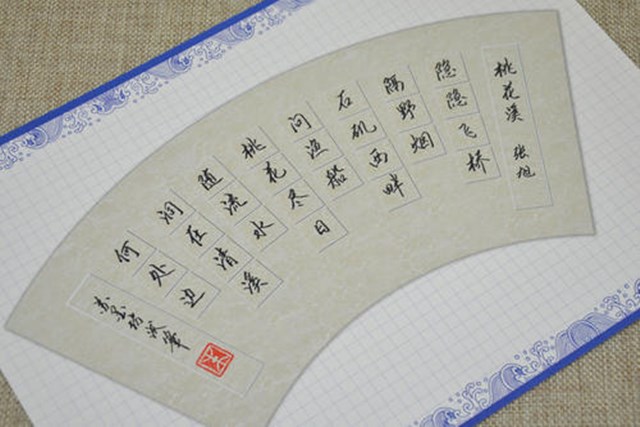 桃花溪 张旭
隐隐飞桥
隔野烟
石矶西畔
问渔船
桃花尽日
随流水
洞在清溪
何处边